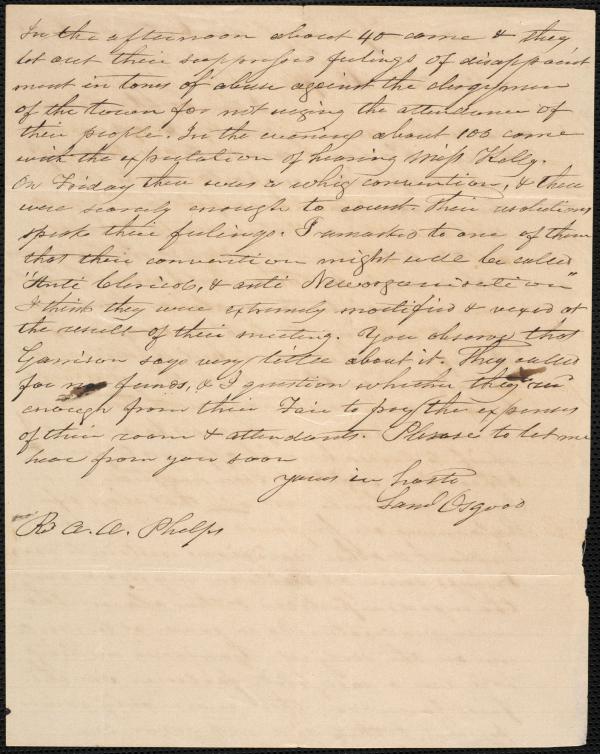 In the afternoon about 40 come & they
let out their suppressed feelings of disappoint
ment in tones of abuse against the clergymen
of the town for not urging the attendance of
their people. In the evening about 100 come
with the expectation of hearing Miss Kelly.
On Friday there was a whig convention, & there
were scarcely enough to count. Their resolutions
speak their feelings. I remarked to one of them
that their convention might well be called
"Anti Clerical, & anti Neworganisation"
I think they were extremely mortified & vexed at
the result of their meeting. You observe that
Garrison says very little about it. They called
for funds, & I question whether they
enough from their Fair to pay the expenses
of their room & attendants. Please to let me
hear from you soon
yours in haste
Saml Osgood
Rev A. A. Phelps